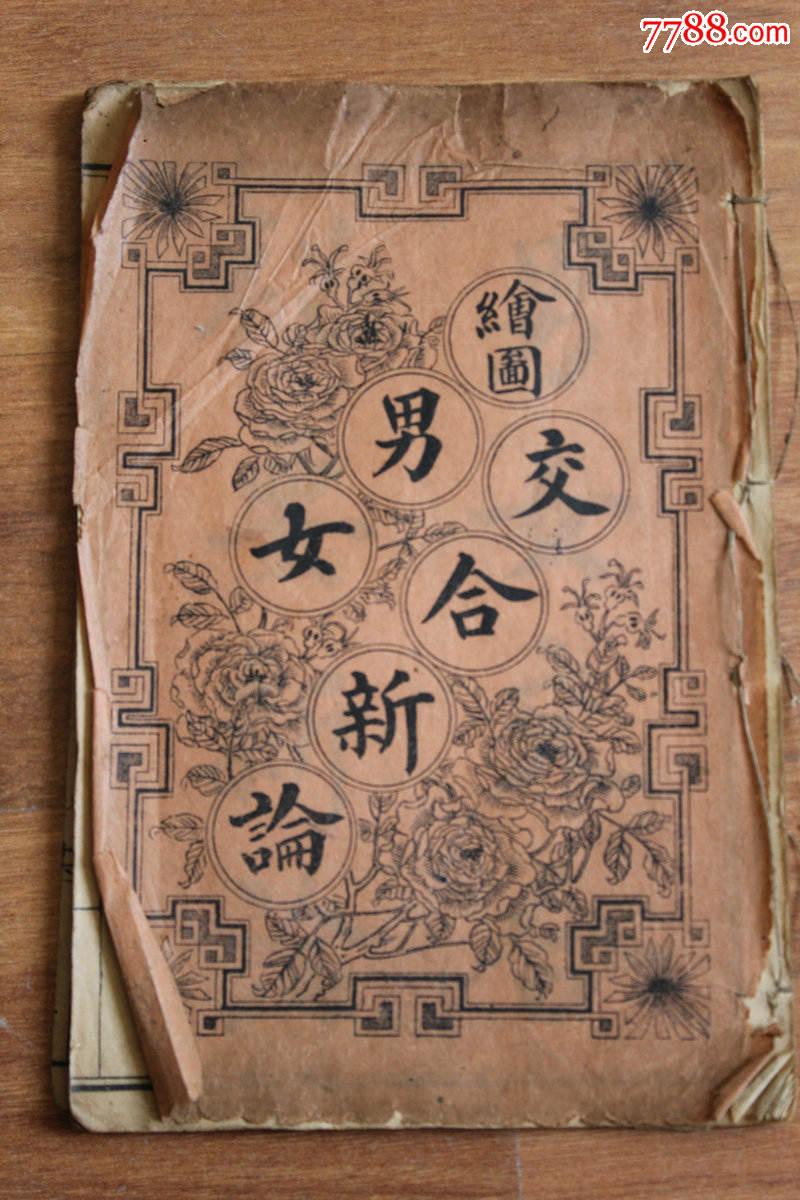 7788.com
繪圖男女
交合新論